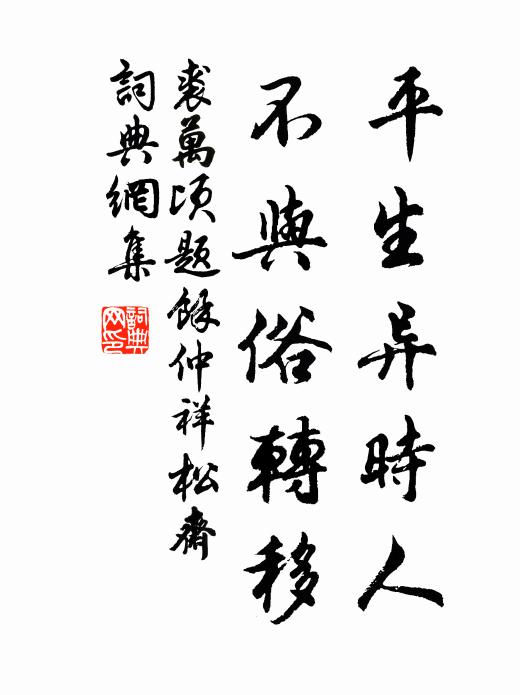 平生异時人
不與俗轉移
裘萬頃題餘仲祥松齋
詞典網集
詞典网印